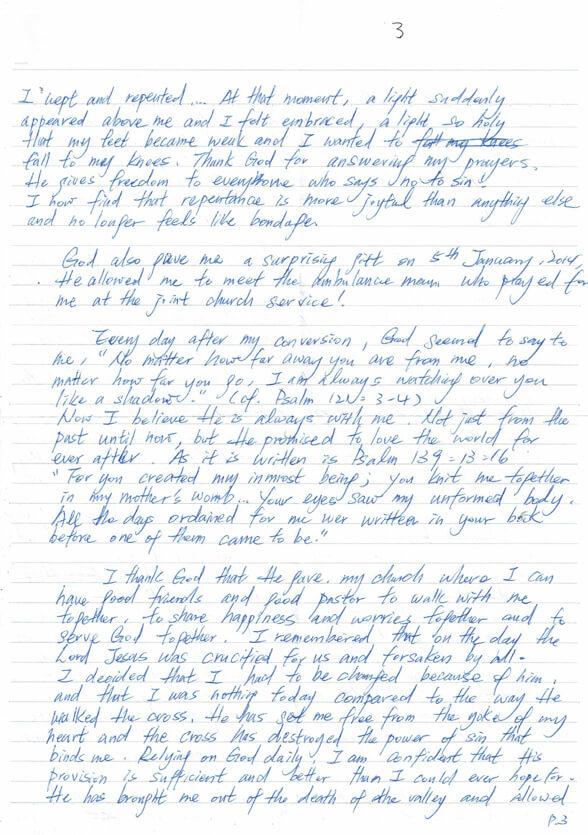 3
I wept and repented.... At that moment, a light suddenly
appeared above me and I felt embraced, a light so holy
that my feet became weak and I wanted to fall my knees
fall to my knees. Thank God for answering my prayers.
He gives freedom to everyone who says no to sin!
I now find that repentance is more joyful than anything else
and no longer feels like bondage.
God also gave me a surprising gift on 5th January, 2014.
He allowed me to meet the ambulance man who prayed for
me at the joint church service!
Every day after my conversion, God seemed to say to
me, "No matter how far away you are from me, no
matter how far you go, I am always watching over you
like a shadow." (cf. Psalm 121=3-4)
Now I believe He is always with me. Not just from the
past until now, but He promised to love the world for
ever after. As it is written is Psalm 139=13=16
"For you created my inmost being; you knit me together
in my mother's womb... Your eyes saw my unformed body.
All the days ordained for me wer written in your book
before one of them came to be."
I thank God that He gave my church where I can
have good friends and good pastor to walk with me
together, to share happiness and worries together and to
serve God together. I remembered that on the day the
Lord Jesus was crucified for us and forsaken by all.
I decided that I had to be changed because of him,
and that I was nothing today compared to the way He
walked the cross. He has set me free from the yoke of my
heart and the cross has destroyed the power of sin that
binds me. Relying on God daily, I am confident that His
provision is sufficient and better than I could ever hope for.
He has brought me out of the death of the valley and allowed
P.3